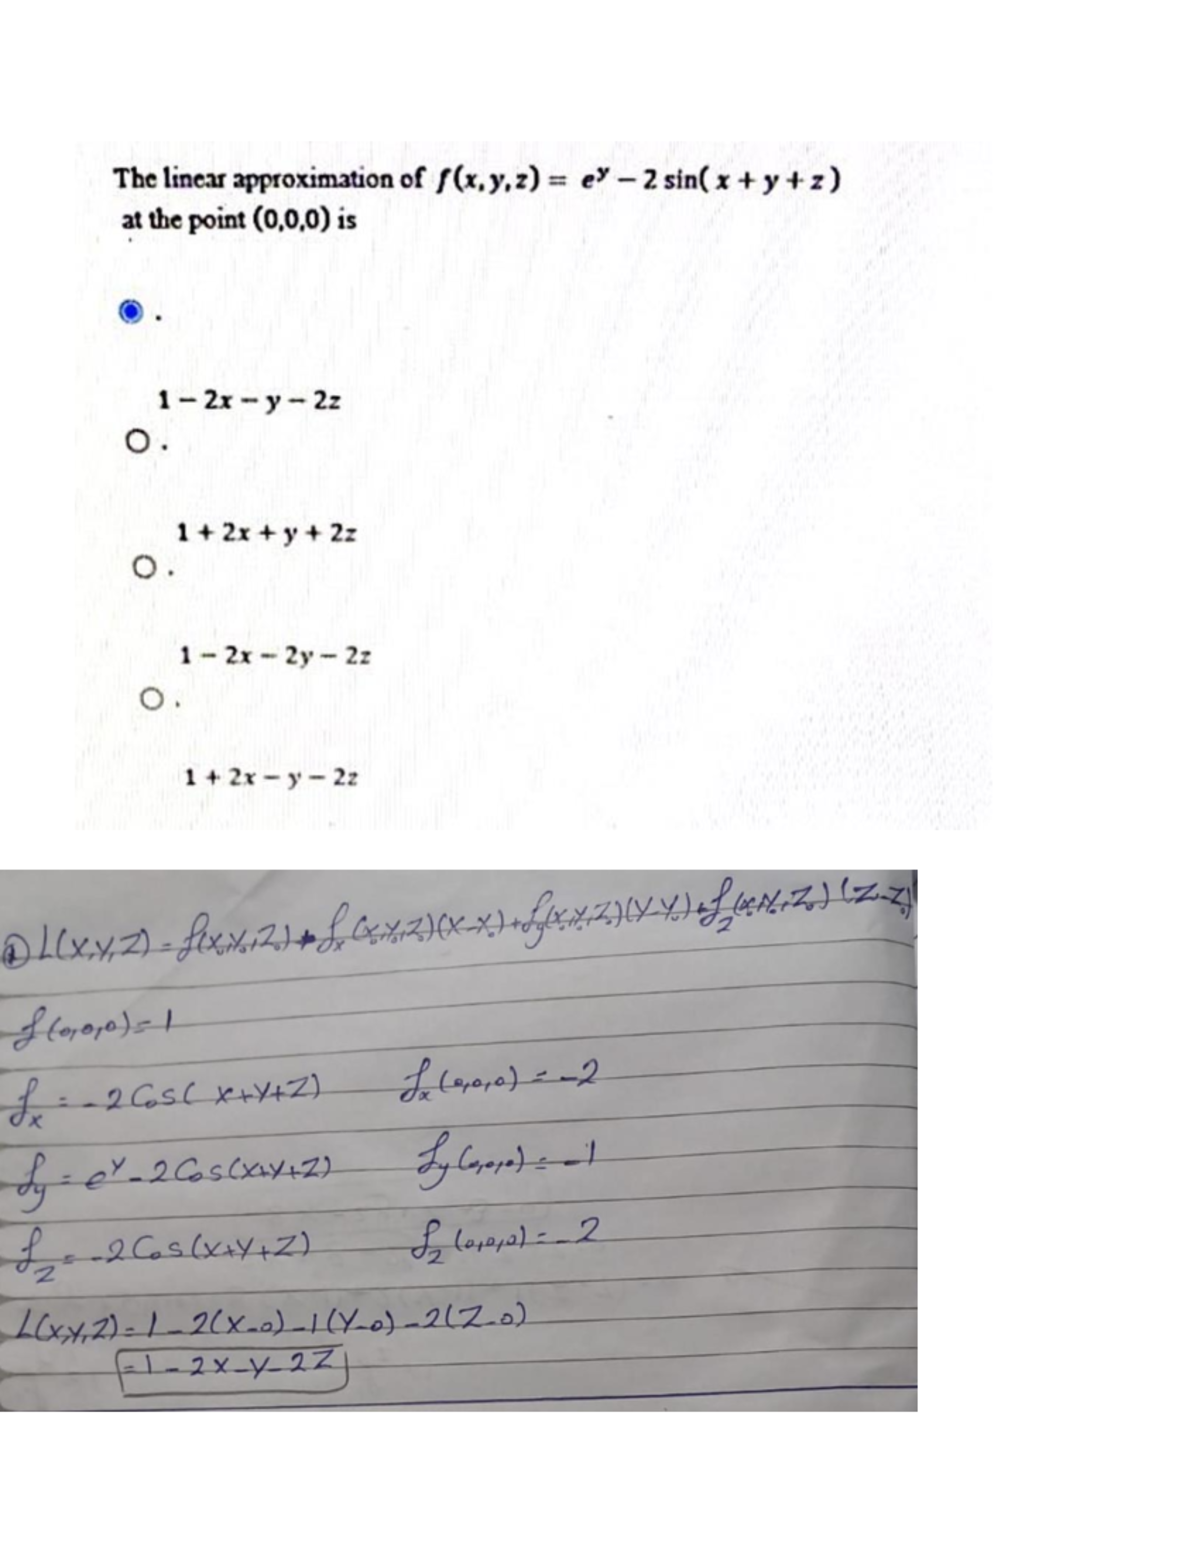 The linear approximation of f(x, y, z) = e^y − 2 sin( x + y + z )
at the point (0,0,0) is
.
1 − 2x − y − 2z
.
1 + 2x + y + 2z
.
1 − 2x − 2y − 2z
.
1 + 2x − y − 2z
① L(x,y,z) = f(x₀,y₀,z₀) + f_x (x₀,y₀,z₀)(x-x₀) + f_y(x₀,y₀,z₀)(y-y₀) + f_z(x₀,y₀,z₀)(z-z₀)
f(0,0,0) = 1
f_x = -2 Cos( x+y+z) f_x(0,0,0) = -2
f_y = e^y - 2 Cos(x+y+z) f_y(0,0,0) = -1
f_z = -2 Cos(x+y+z) f_z(0,0,0) = -2
L(x,y,z) = 1 - 2(x-0) - 1(y-0) - 2(z-0)
= 1 - 2x - y - 2z